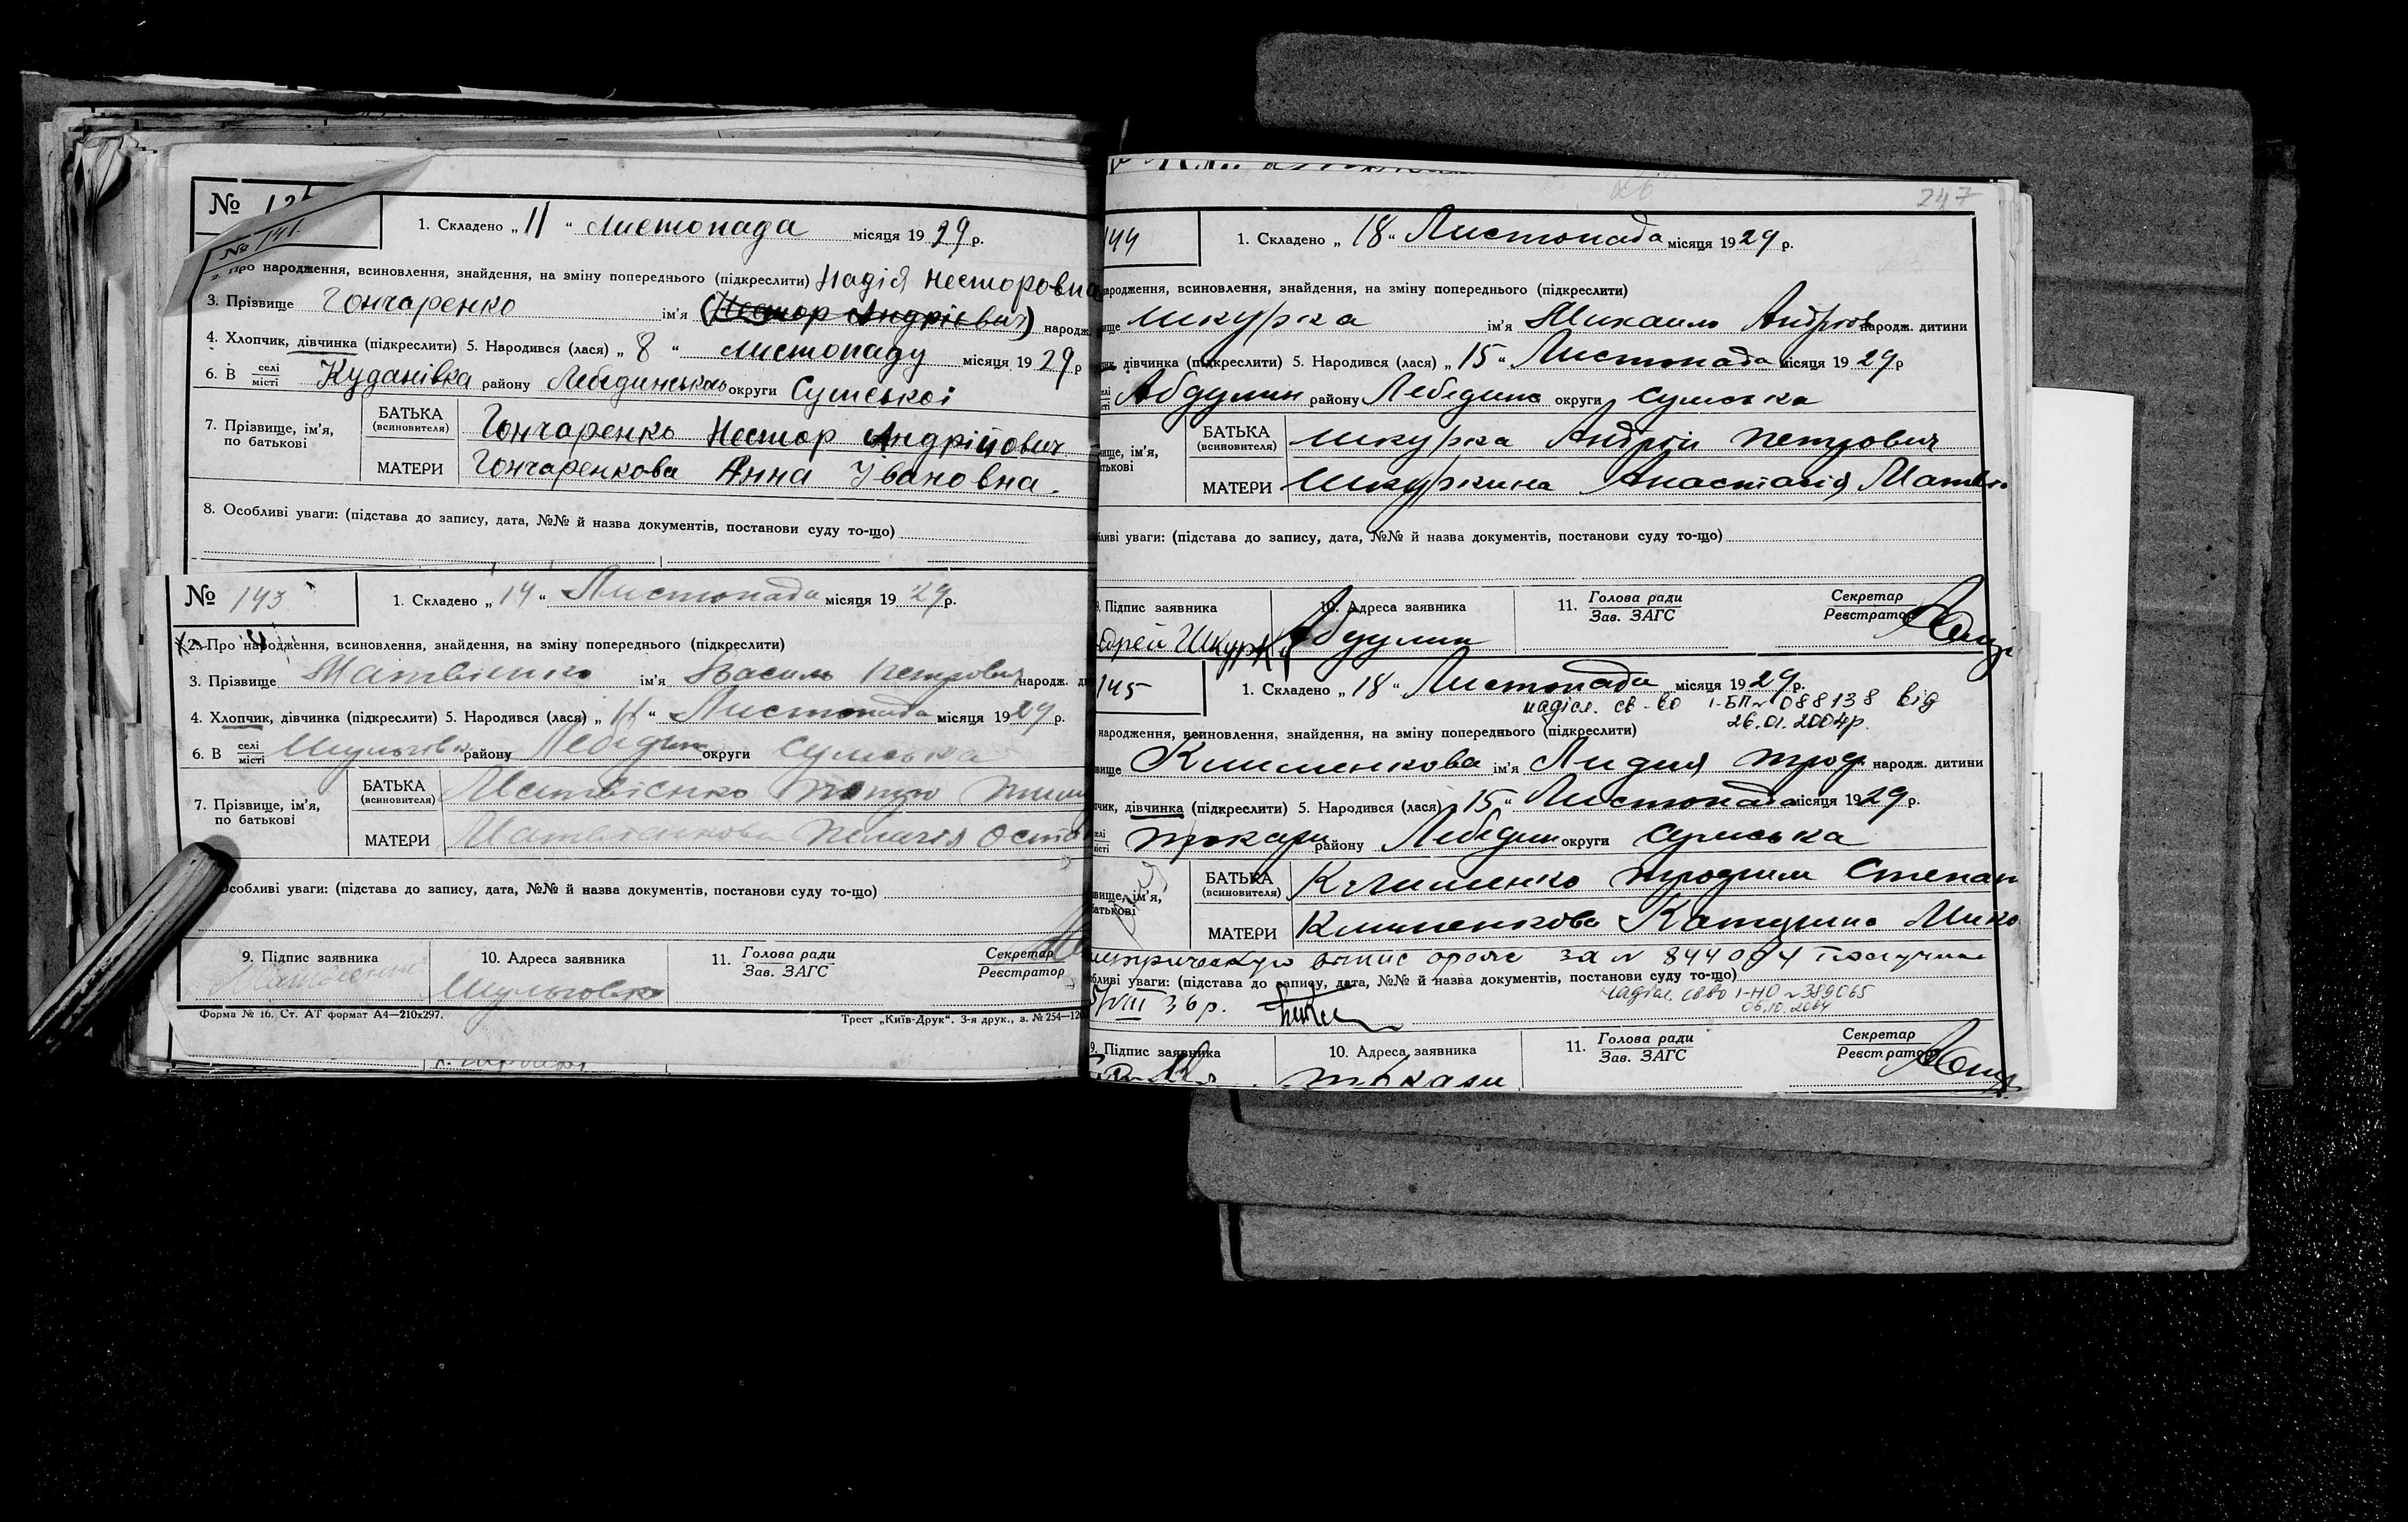 № 12
№ 141.
1. Складено „ 11 “ Листопада місяця 19 29 р.
2. Про народження, всиновлення, знайдення, на зміну попереднього (підкреслити) Надія Несторовна
3. Прізвище Гончаренко ім'я (Нестор Андрієвич) народж
4. Хлопчик, дівчинка (підкреслити) 5. Народився (лася) „ 8 “ листопаду місяця 19 29 р
6. В селі місті Куданівка району Лебединського округи Сумської
7. Прізвище, ім'я, по батькові
БАТЬКА (всиновителя) Гончаренко Нестор Андрійович
МАТЕРИ Гончаренкова Анна Івановна.
8. Особливі уваги: (підстава до запису, дата, №№ й назва документів, постанови суду то-що)
№ 143
1. Складено „ 14 “ Листопада місяця 19 29 р.
2. Про народження, всиновлення, знайдення, на зміну попереднього (підкреслити)
3. Прізвище Матвієнко ім'я Василь Петрович народж. ди
4. Хлопчик, дівчинка (підкреслити) 5. Народився (лася) „ 11 “ Листопада місяця 19 29 р.
6. В селі місті району Лебедин округи Сумська
7. Прізвище, ім'я, по батькові
БАТЬКА (всиновителя) Матвієнко Петро
МАТЕРИ Матвієнкова Оста
Особливі уваги: (підстава до запису, дата, №№ й назва документів, постанови суду то-що)
9. Підпис заявника 10. Адреса заявника 11. Голова ради Зав. ЗАГС Секретар Реєстратор
Матвієнко
Форма № 16. Ст. АТ формат А4—210х297. Трест „Київ-Друк“. 3-я друк., з. № 254—120
247
144
1. Складено „ 18 “ Листопада місяця 19 29 р.
ародження, всиновлення, знайдення, на зміну попереднього (підкреслити)
ище Шкурка ім'я Михаиль Андріов народж. дитини
дівчинка (підкреслити) 5. Народився (лася) „ 15 “ Листопада місяця 19 29 р
Абдулин району Лебедин округи Сумська
ище, ім'я, атькові
БАТЬКА (всиновителя) Шкурка Андрій Петрович
МАТЕРИ Шкуркина Анастасія Матві
ливі уваги: (підстава до запису, дата, №№ й назва документів, постанови суду то-що)
9. Підпис заявника 10. Адреса заявника 11. Голова ради Зав. ЗАГС Секретар Реєстратор
дрей Шкурка Абдулин
145
1. Складено „ 18 “ Листопада місяця 19 29 р.
надісл. св-во І-БП № 088138 від
26.01.2004р.
народження, всиновлення, знайдення, на зміну попереднього (підкреслити)
вище Клименкова ім'я Лидия Троф. народж. дитини
пчик, дівчинка (підкреслити) 5. Народився (лася) „ 15 “ Листопада місяця 19 29 р.
Токари району Лебедин округи Сумська
вище, ім'я, батькові
БАТЬКА (всиновителя) Клименко Трофим Степан
МАТЕРИ Клименкова Катерина Мико
за № 844004
бливі уваги: (підстава до запису, дата, №№ й назва документів, постанови суду то-що)
надісл. св-во І-НО № 389065
06.10.2004
VIII 36 р.
9. Підпис заявника 10. Адреса заявника 11. Голова ради Зав. ЗАГС Секретар Реєстратор
Токари